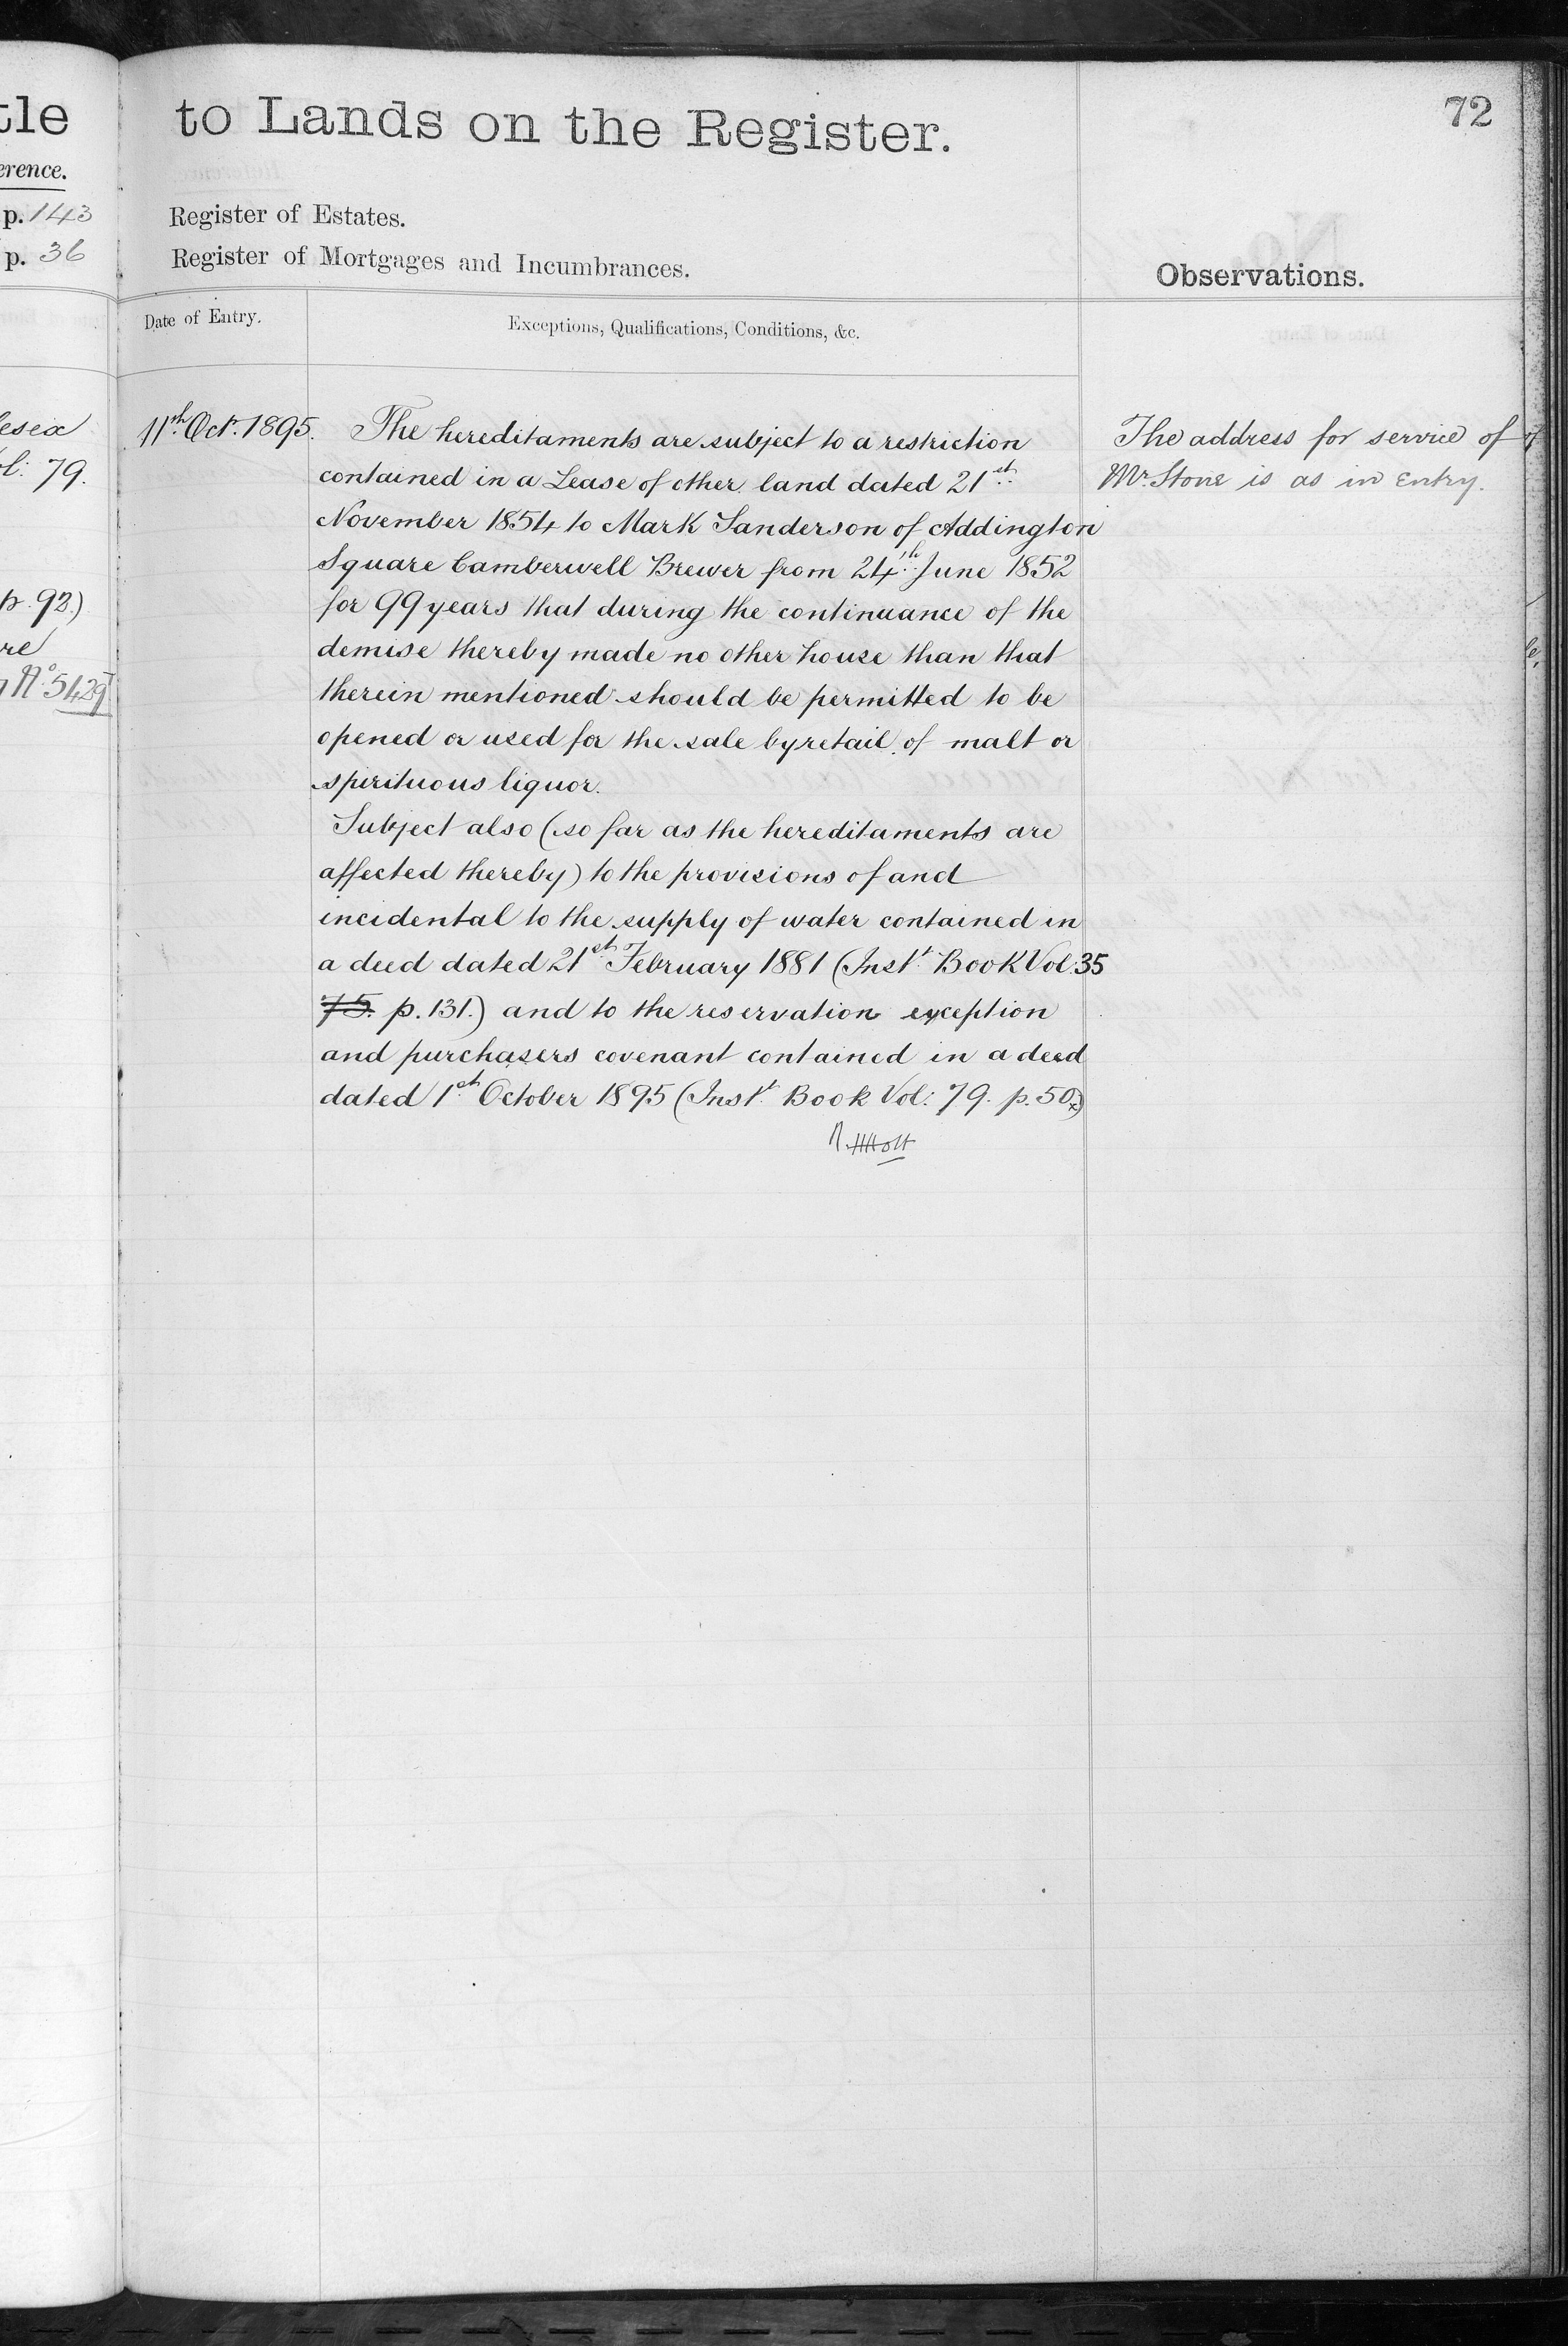 tle
erence.
p. 143
p. 36
esex
ol: 79.
p. 92.)
re
Nº 5429
to Lands on the Register.
72
Register of Estates.
Register of Mortgages and Incumbrances.
Observations.
Date of Entry.
Exceptions, Qualifications, Conditions, &c.
11th Oct. 1895.
The hereditaments are subject to a restriction
contained in a Lease of other land dated 21st
November 1854 to Mark Sanderson of Addington
Square Camberwell Brewer from 24th June 1852
for 99 years that during the continuance of the
demise thereby made no other house than that
therein mentioned should be permitted to be
opened or used for the sale by retail of malt or
spirituous liquor.
Subject also (so far as the hereditaments are
affected thereby) to the provisions of and
incidental to the supply of water contained in
a deed dated 21st February 1881 (Inst. Book Vol: 35
75. p. 131.) and to the reservation exception
and purchasers covenant contained in a deed
dated 1st October 1895 (Inst. Book Vol: 79. p. 50.)
The address for service of
Mr. Stone is as in Entry.